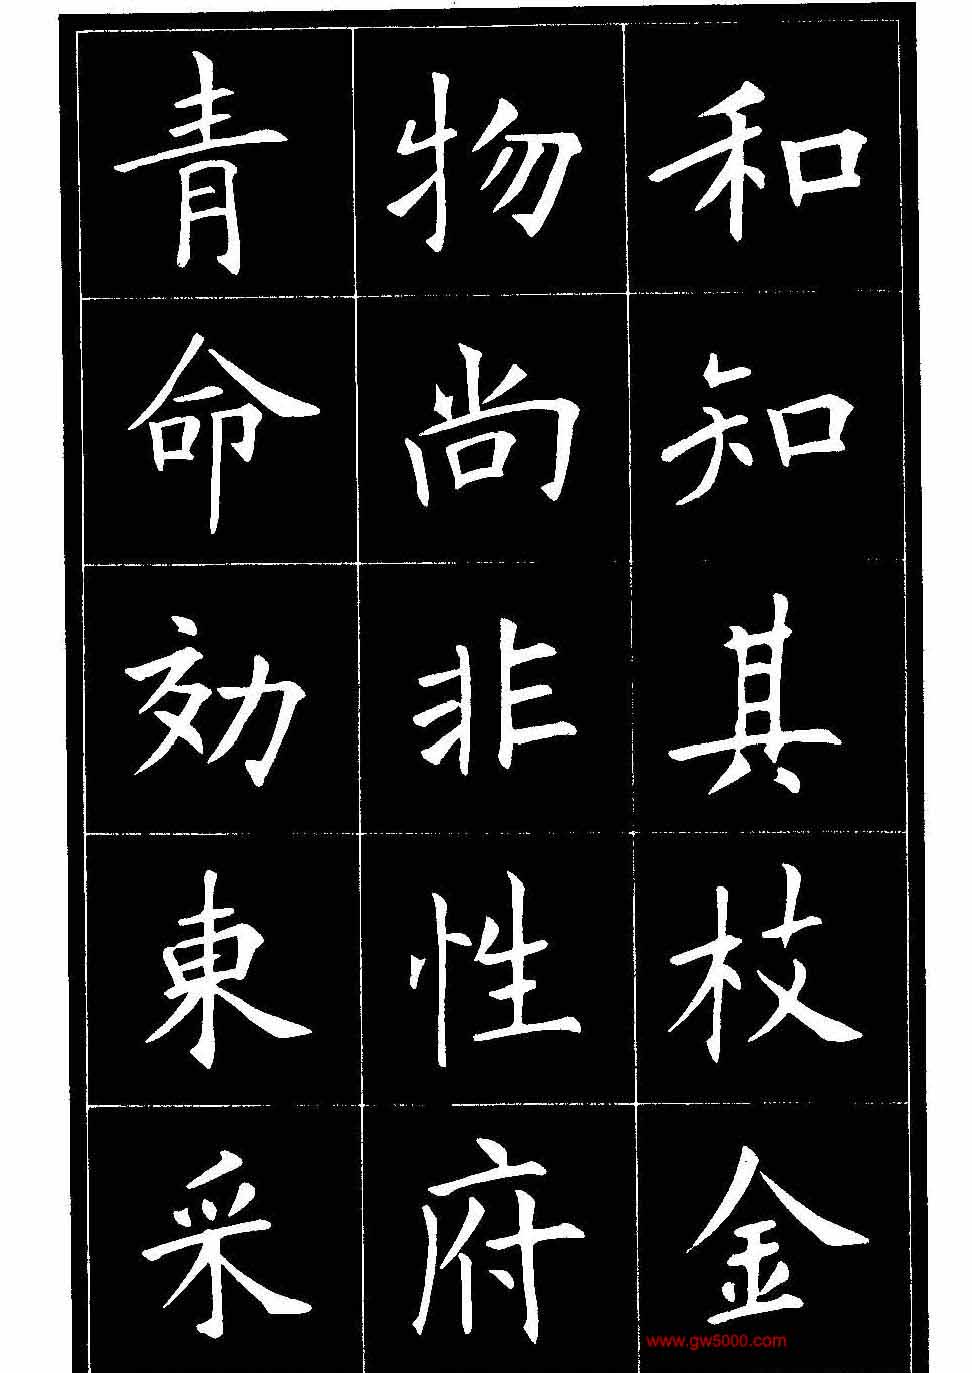 和知其枝金
物尚非性府
青命効東采
www.gw5000.com